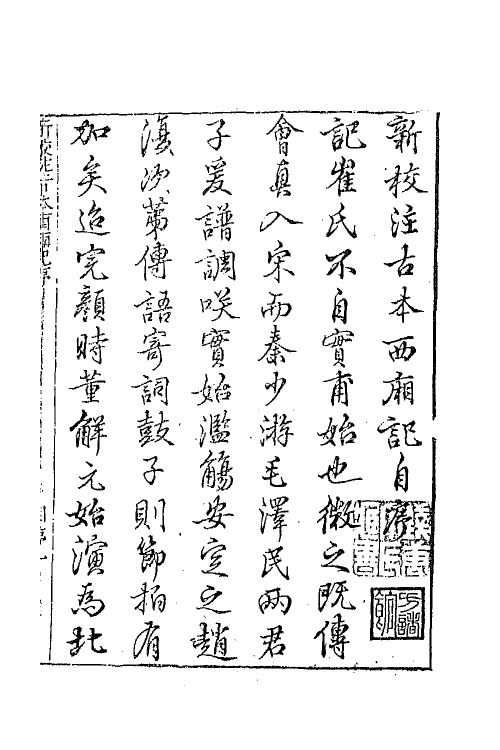 新校注古本西廂記自序
記崔氏不自實甫始也微之既傳
會真入宋而秦少游毛澤民兩君
子爰譜調咲實始濫觴安定之趙
復以第傳語寄詞鼓子則節拍有
加矣迨完顏時董解元始演為北